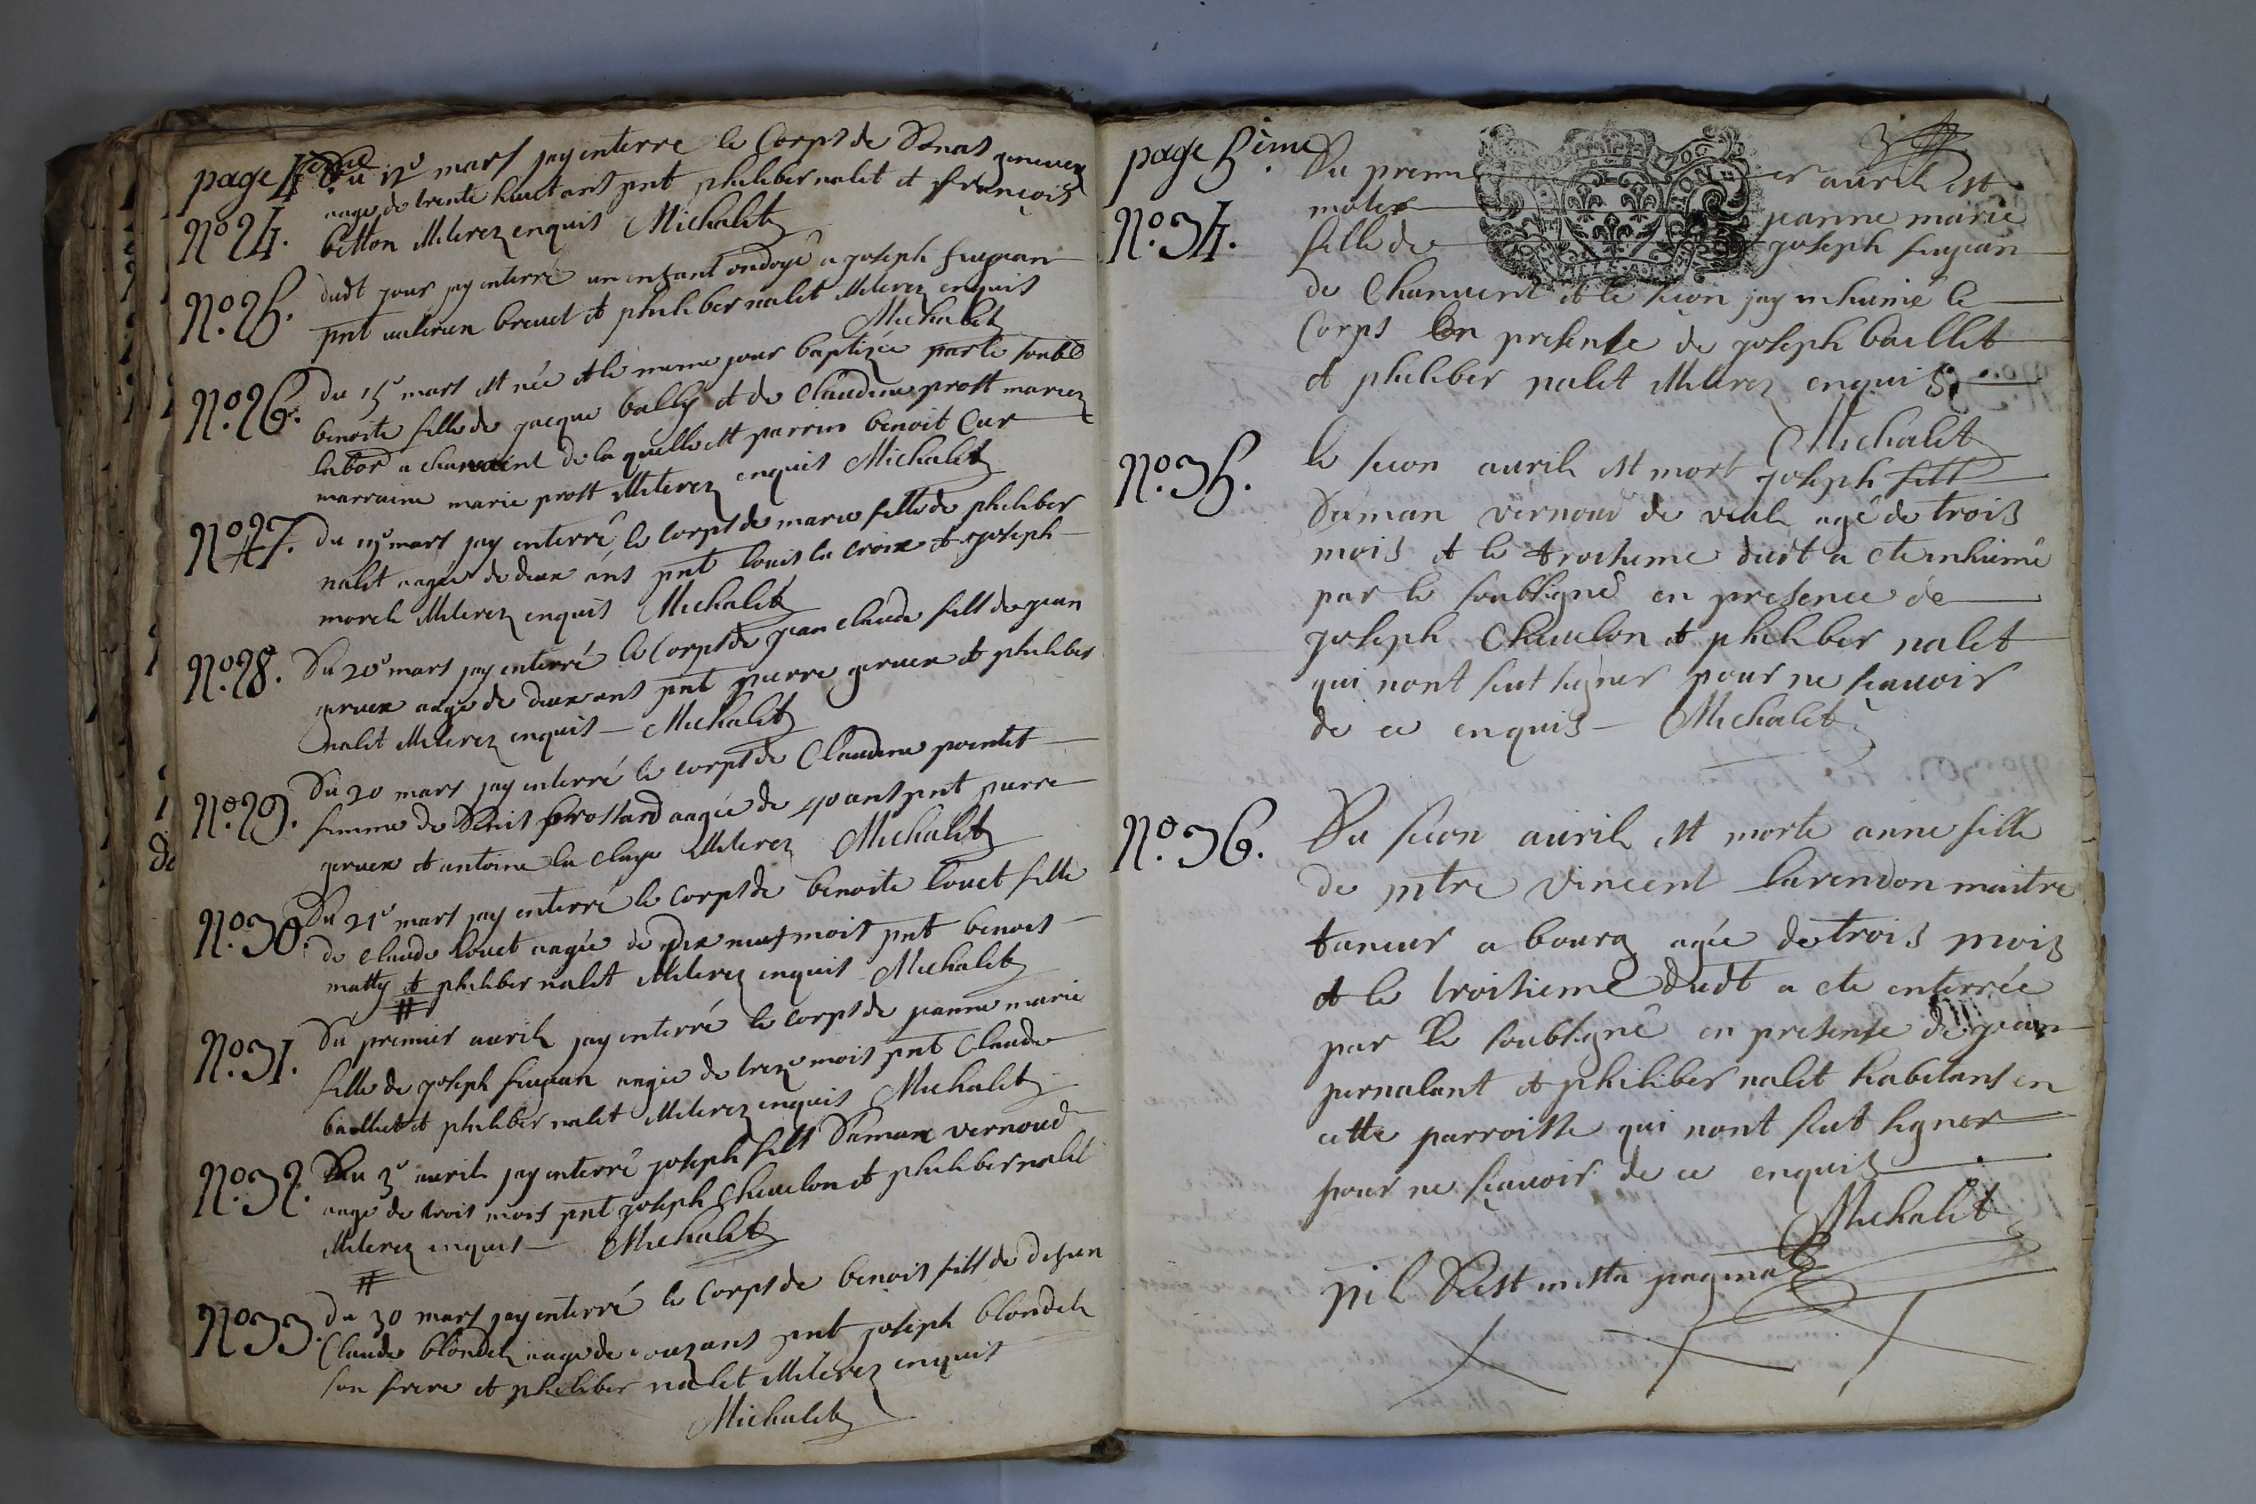 page 4eme Du 12e mars jay enterré le Corps de Denas
N.o 24. aagé de trente huict ans pnt philiber nalet et françois
betton illiterez enquis Michalet
N.o 25. dudt jour jay enterré un enfant ondoyé a joseph
pnt brevet et philiber nalet illiterez enquis
Michalet
N.o 26. du 15e mars est née et le meme jour baptizee par le soubse
benoite fille de jacque bally et de Claudine prost mariez
labor a de laquelle est parrin benoit Cur
marraine marie prost illiterez enquis Michalet
N.o 27. du mars jay enterré le corps de marie fille de philiber
nalet aagée de deux ans pnt louis la croix et joseph
morel illiterez enquis Michalet
N.o 28. Du 20e mars jay enterré le Corps de jean claude fils de jean
geruex aagé de deux ans pnt pierre geruex et philiber
nalet illiterez enquis Michalet
N.o 29. Du 20 mars jay enterré le corps de Claudine pointet
femme de Denis brossard aagée de 40 ans pnt pierre
geruex et antoine la claye illiterez Michalet
N.o 30. Du 21e mars jay enterré le corps de benoite louet fille
de claude louet aagée de dix neuf mois pnt benois
matty et philiber nalet illiterez enquis Michalet
#
N.o 31. Du premier avril jay enterré le corps de jeanne marie
fille de joseph aagée de treze mois pnt Claude
baillet et philiber nalet illiterez enquis Michalet
N.o 32. Du 3e avril jay enterré joseph fils Daman vernoud
aagé de trois mois pnt joseph Chavelon et philiber nalet
illiterez enquis Michalet
#
N.o 33. du 30 mars jay enterré le Corps de benois fils de defun
Claude blondel aagé de ans pnt joseph blondel
son frere et philiber nalet illiterez enquis
Michalet
page 5ième Du premier avril est
N.o 34. morte jeanne marie
fille de joseph
de Chanvent et le secon jay inhumé le
Corps en presense de joseph baillet
et philiber nalet illiterez enquis
Michalet
N.o 35. le secon avril est mort joseph fils
Daman vernoud de agé de trois
mois et le trosieme dudt a ete inhumé
par le soubsigné en presence de
joseph Chavelon et philiber nalet
qui nont seut signer pour ne scavoir
de ce enquis Michalet
N.o 36. Du secon avril est morte anne fille
de mtre vincent larendon maitre
taneur a bourg agée de trois mois
et le troisieme dudt a ete enterrée
par le soubsigné en presense de jean
pernalant et philiber nalet habitans en
cette parroisse qui nont seut signer
pour ne scavoir de ce enquis
Michalet
nil Deest in ista pagina